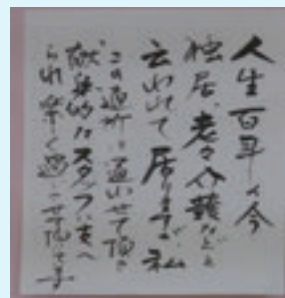 人生百年の今
独居、老々介護などと
云われて居りますが、私
この通所に通いせて頂き
献身的なスタッフに支へ
られ楽しく過ごせて頂てます